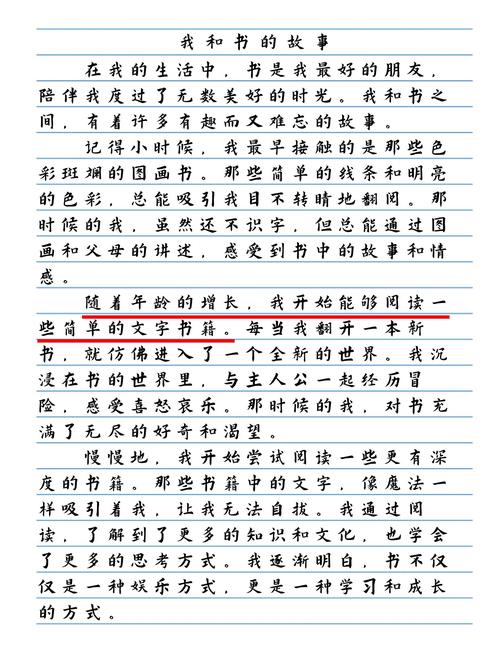 我和书的故事
在我的生活中，书是我最好的朋友，
陪伴我度过了无数美好的时光。我和书之
间，有着许多有趣而又难忘的故事。
记得小时候，我最早接触的是那些色
彩斑斓的图画书。那些简单的线条和明亮
的色彩，总能吸引我目不转睛地翻阅。那
时候的我，虽然还不识字，但总能通过图
画和父母的讲述，感受到书中的故事和情
感。
随着年龄的增长，我开始能够阅读一
些简单的文字书籍。每当我翻开一本新
书，就仿佛进入了一个全新的世界。我沉
浸在书的世界里，与主人公一起经历冒
险，感受喜怒哀乐。那时候的我，对书充
满了无尽的好奇和渴望。
慢慢地，我开始尝试阅读一些更有深
度的书籍。那些书籍中的文字，像魔法一
样吸引着我，让我无法自拔。我通过阅
读，了解到了更多的知识和文化，也学会
了更多的思考方式。我逐渐明白，书不仅
仅是一种娱乐方式，更是一种学习和成长
的方式。